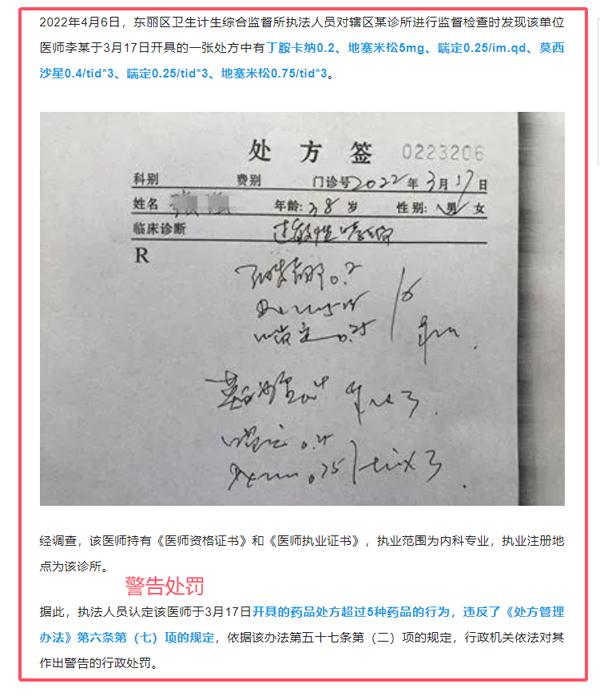 2022年4月6日，东丽区卫生计生综合监督所执法人员对辖区某诊所进行监督检查时发现该单位
医师李某于3月17日开具的一张处方中有丁胺卡纳0.2、地塞米松5mg、喘定0.25/im.qd、莫西
沙星0.4/tid*3、喘定0.25/tid*3、地塞米松0.75/tid*3。
处方签 0223206
科别 费别 门诊号 2022年3月17日
姓名 年龄: 38 岁 性别: 男 女
临床诊断 过敏性哮喘
R
0.2
喘定 0.25
3
喘定
.75 tid x 3
经调查，该医师持有《医师资格证书》和《医师执业证书》，执业范围为内科专业，执业注册地
点为该诊所。
警告处罚
据此，执法人员认定该医师于3月17日开具的药品处方超过5种药品的行为，违反了《处方管理
办法》第六条第（七）项的规定，依据该办法第五十七条第（二）项的规定，行政机关依法对其
作出警告的行政处罚。